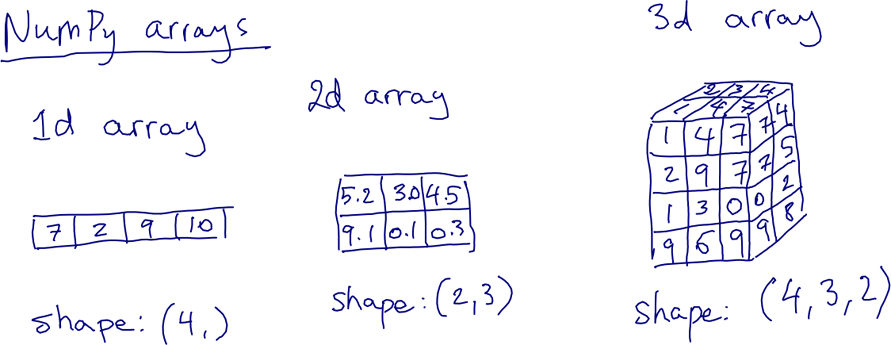 NumPy arrays
1d array
7 2 9 10
shape: (4,)
2d array
5.2 3.0 4.5
9.1 0.1 0.3
shape: (2,3)
3d array
2 3 4
1 4 7
1 4 7 7 4
2 9 7 7 5
1 3 0 0 2
9 6 9 9 8
shape: (4,3,2)